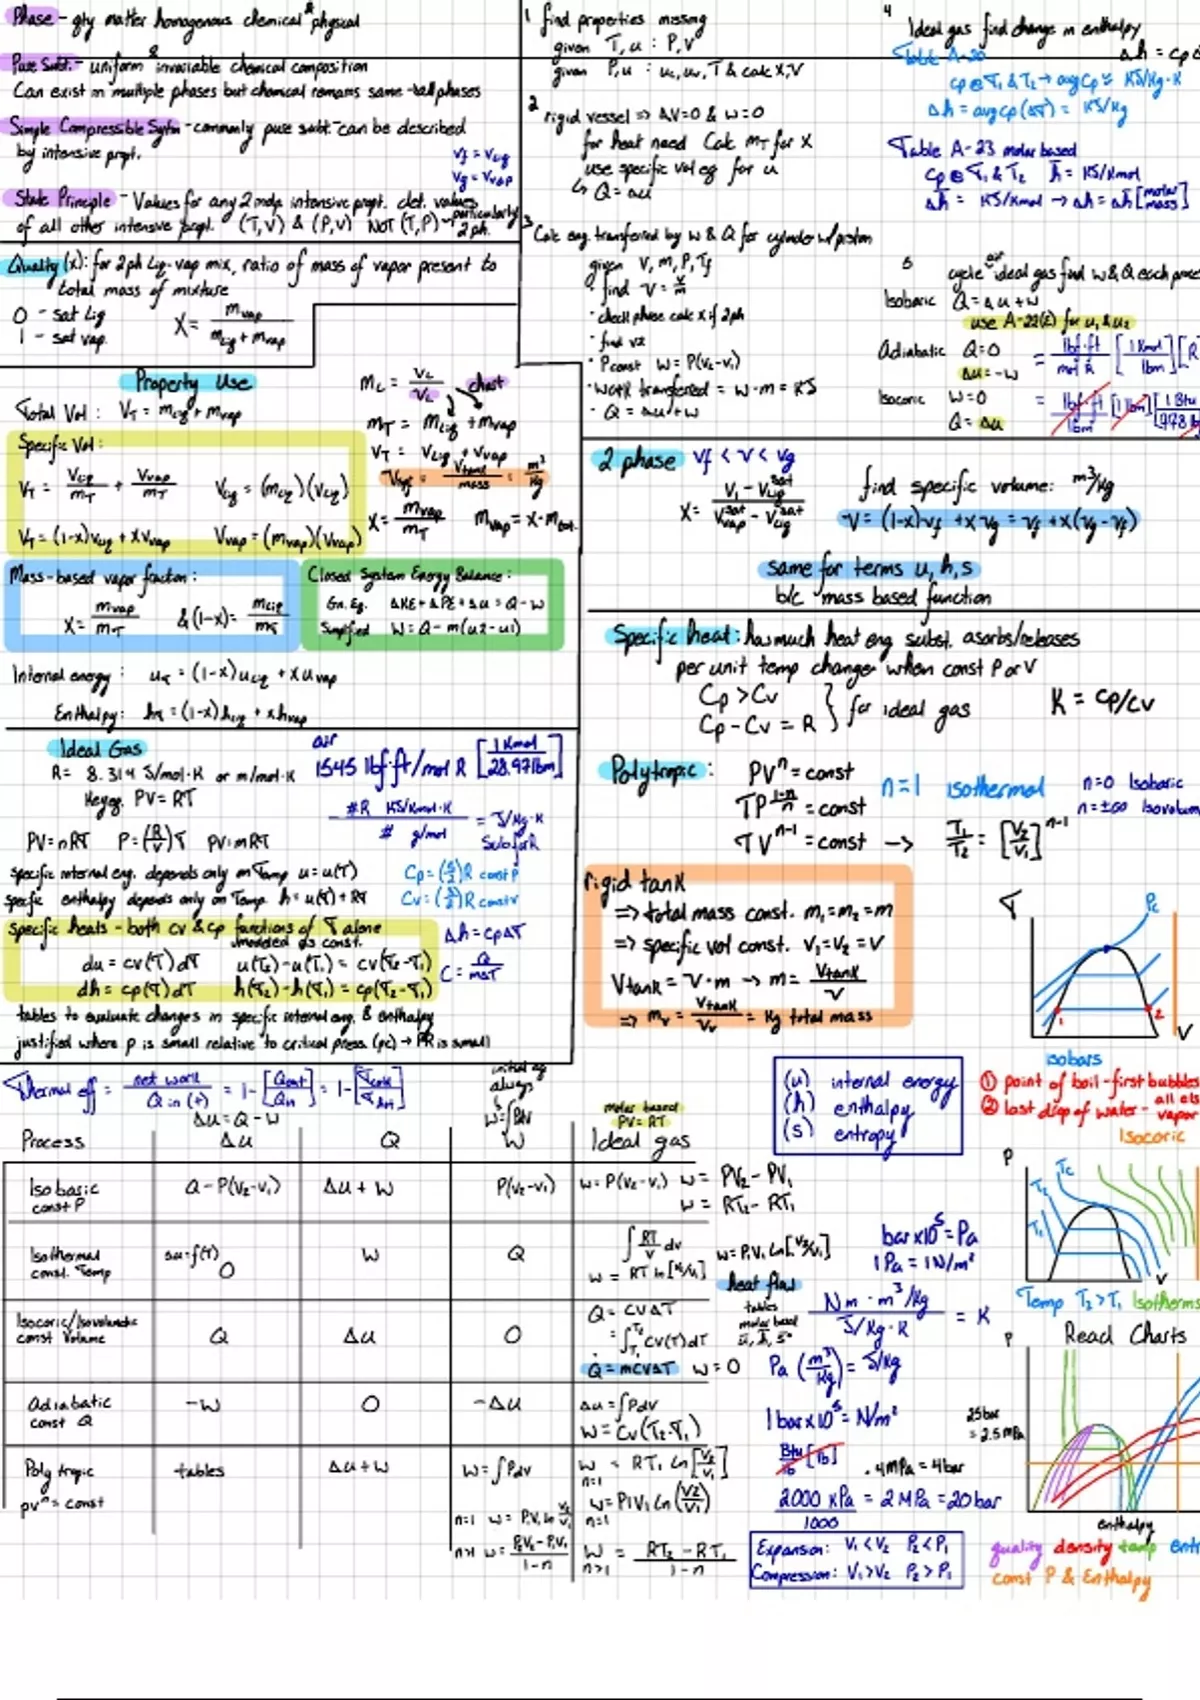 Phase - qty matter homogenous chemical & physical
Pure Subt. - uniform & invariable chemical composition
Can exist in multiple phases but chemical remains same - all phases
Simple Compressible Sytm - commonly pure subt. can be described
by intensive prpt.
Vf = Vliq
Vg = Vvap
State Principle - Values for any 2 indp intensive prpt. det. values
of all other intensive prpt. (T,V) & (P,V) NOT (T,P) - particularly 2 ph.
Quality (x): for 2ph Liq-vap mix, ratio of mass of vapor present to
total mass of mixture
0 - sat liq
1 - sat vap.
X = mvap / mliq + mvap
Property Use
Total Vol: VT = mliq + mvap
Specific Vol:
VT = Vliq/mT + Vvap/mT Vliq = (mliq)(vliq)
VT = (1-x)vliq + x vvap Vvap = (mvap)(vvap)
mL = VL/vL chart
mT = mliq + mvap
VT = Vliq + Vvap
= Vtank/mass = m³/kg
X = mvap/mT mvap = x·mtot.
Mass-based vapor fraction:
X = mvap/mT & (1-x) = mliq/mT
Closed System Energy Balance:
Gn. Eq. ΔKE + ΔPE + Δu = Q - W
Simplified W = Q - m(u2 - u1)
Internal energy: uT = (1-x)uliq + x uvap
Enthalpy: hx = (1-x)hliq + x hvap
Ideal Gas
R = 8.314 J/mol·K or m/mol·K
PV = RT
air
1545 lbf·ft/mol R [1 Kmol / 28.97 lbm]
#R KJ/Kmol·K / # g/mol = J/Kg·K
Sub for R
PV = nRT P = (R/V)T PV = mRT
specific internal eng. depends only on Temp u = u(T)
specific enthalpy depends only on Temp. h = u(T) + RT
Cp = (5/2)R const P
Cv = (3/2)R const V
specific heats - both cv & cp functions of T alone
modeled as const.
du = cv(T)dT u(T2) - u(T1) = cv(T2-T1)
dh = cp(T)dT h(T2) - h(T1) = cp(T2-T1)
Δh = cpΔT
C = Q/mΔT
tables to evaluate changes in specific internal eng. & enthalpy
justified where p is small relative to critical press (pc) → PR is small
1 find properties missing
given T, u : P, V
given P, u : uL, uv, T & calc X, V
2 rigid vessel => ΔV=0 & W=0
for heat need Calc mT for X
use specific vol eq for u
↳ Q = Δu
3 Calc eng. transferred by W & Q for cylinder w/ piston
given V, m, P, Tf
· find v = V/m
· check phase calc x if 2ph
· find v2
· P const W = P(V2-V1)
· Work transferred = W·m = KJ
· Q = Δu + W
4 Ideal gas find change in enthalpy
Table A-20 Δh = cp
cp @ T1 & T2 → avg cp = KJ/Kg·K
Δh = avg cp (ΔT) = KJ/Kg
Table A-23 molar based
cp @ T1 & T2 h = KJ/Kmol
Δh = KJ/Kmol → Δh = Δh [molar mass]
5 cycle air ideal gas find W & Q each proces
Isobaric Q = Δu + W
use A-22(E) for u1 & u2
Adiabatic Q=0 = lbf·ft/mol R [1 Kmol/lbm] [R
Δu = -W
Isocoric W=0
Q = Δu
2 phase Vf < V < Vg
X = V1 - Vliq sat / Vvap sat - Vliq sat
find specific volume: m³/Kg
V = (1-x)Vf + x Vg = Vf + x(Vg - Vf)
same for terms u, h, s
b/c mass based function
Specific heat: how much heat eng subst. asorbs/releases
per unit temp change when const P or V
Cp > Cv
Cp - Cv = R } for ideal gas K = Cp/Cv
Polytropic: PVⁿ = const n=1 isothermal n=0 Isobaric
TP^(1-n)/n = const n=±∞ Isovolum
TVⁿ⁻¹ = const -> T1/T2 = [V2/V1]ⁿ⁻¹
rigid tank
=> total mass const. m1 = m2 = m
=> specific vol const. V1 = V2 = V
Vtank = V·m -> m = Vtank/V
=> mv = Vtank/Vv = Kg total mass
T Pc
1 2 V
isobars
① point of boil - first bubbles
② last drop of water - all els vapor
Isocoric
(u) internal energy
(h) enthalpy
(s) entropy
Thermal eff = net work / Q in (t) = 1 - [Qout/Qin] = 1 - [Tcold/Thot]
Δu = Q - W
always
W = ∫PdV
molar based
PV = RT
Process Δu Q W Ideal gas
Isobaric const P Q - P(V2-V1) Δu + W P(V2-V1) W = P(V2-V1) W = PV2 - PV1
W = RT2 - RT1
Isothermal const. Temp Δu = f(T) 0 W Q ∫ RT/V dv W = P1V1 Ln[V2/V1]
W = RT ln[V2/V1]
Isocoric/Isovolumetric const Volume Q Δu 0 Q = CVΔT
= ∫ CV(T)dT
Q = mCVΔT W = 0
Adiabatic const Q -W 0 -Δu Δu = ∫PdV
W = Cv(T2-T1)
Polytropic pvⁿ = const tables Δu + W W = ∫Pdv W = RT1 Ln[V2/V1]
n=1
W = P1V1 Ln(V2/V1)
n=1
n=1 W = P1V1 ln V2/V1
n>1 W = P2V2 - P1V1 / 1-n
W = RT2 - RT1 / 1-n
n>1
heat flow
tables
molar based
u, h, s°
bar x10⁵ = Pa
1 Pa = 1 N/m²
Nm · m³/Kg / J/Kg·K = K
Pa (m³/Kg) = J/Kg
1 bar x10⁵ = N/m²
Btu/lb [lb]
.4MPa = 4bar
2000 kPa / 1000 = 2 MPa = 20 bar
Expansion: V1 < V2 P2 < P1
Compression: V1 > V2 P2 > P1
P Tc
T2
T1
V
Temp T2 > T1 Isotherms
P Read Charts
25bar
= 2.5 MPa
enthalpy
quality density temp entr
const P & Enthalpy